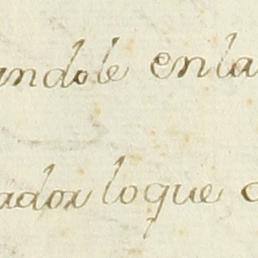 andole enla
ador loque